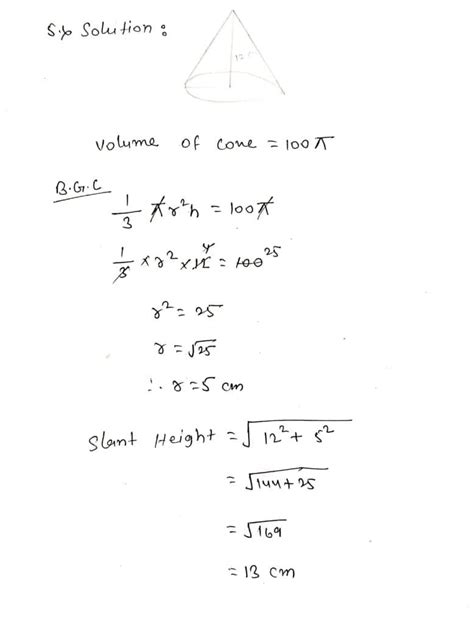 S.y Solution :
12
Volume of cone = 100π
B.G.C
1/3 πr²h = 100π
1/3 × r² × 12 4 = 100 25
r² = 25
r = √25
∴ r = 5 cm
Slant Height = √12² + 5²
= √144 + 25
= √169
= 13 cm